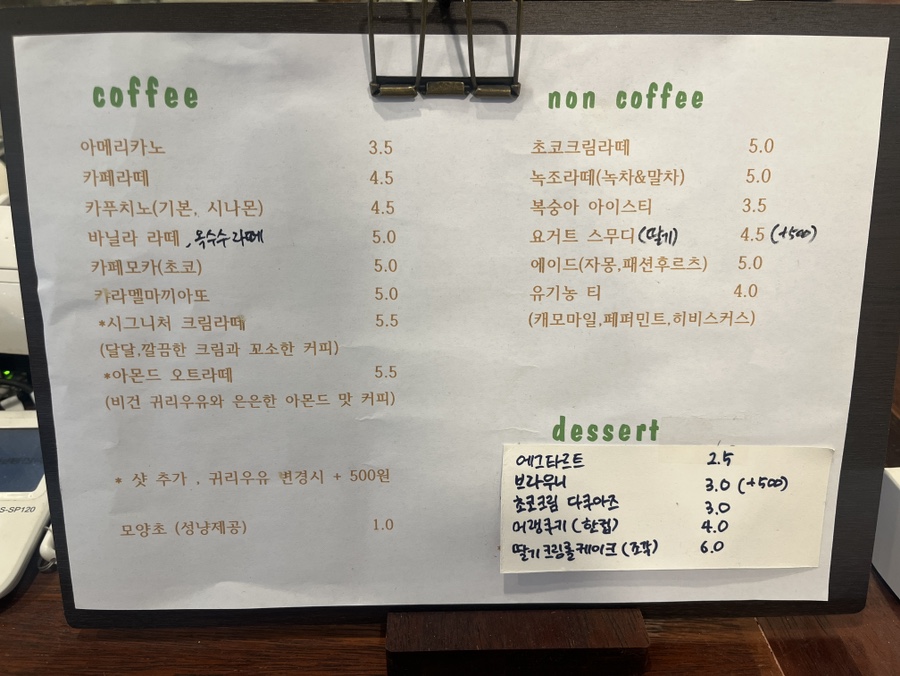 coffee
아메리카노 3.5
카페라떼 4.5
카푸치노(기본, 시나몬) 4.5
바닐라 라떼, 옥수수라떼 5.0
카페모카(초코) 5.0
캬라멜마끼아또 5.0
*시그니처 크림라떼 5.5
(달달,깔끔한 크림과 꼬소한 커피)
*아몬드 오트라떼 5.5
(비건 귀리우유와 은은한 아몬드 맛 커피)
* 샷 추가 , 귀리우유 변경시 + 500원
모양초 (성냥제공) 1.0
non coffee
초코크림라떼 5.0
녹조라떼(녹차&말차) 5.0
복숭아 아이스티 3.5
요거트 스무디(딸기) 4.5 (+500)
에이드(자몽,패션후르츠) 5.0
유기농 티 4.0
(캐모마일,페퍼민트,히비스커스)
dessert
에그타르트 2.5
브라우니 3.0 (+500)
초코크림 다쿠아즈 3.0
머랭쿠키 (한컵) 4.0
딸기크림롤케이크 (조각) 6.0
S-SP120